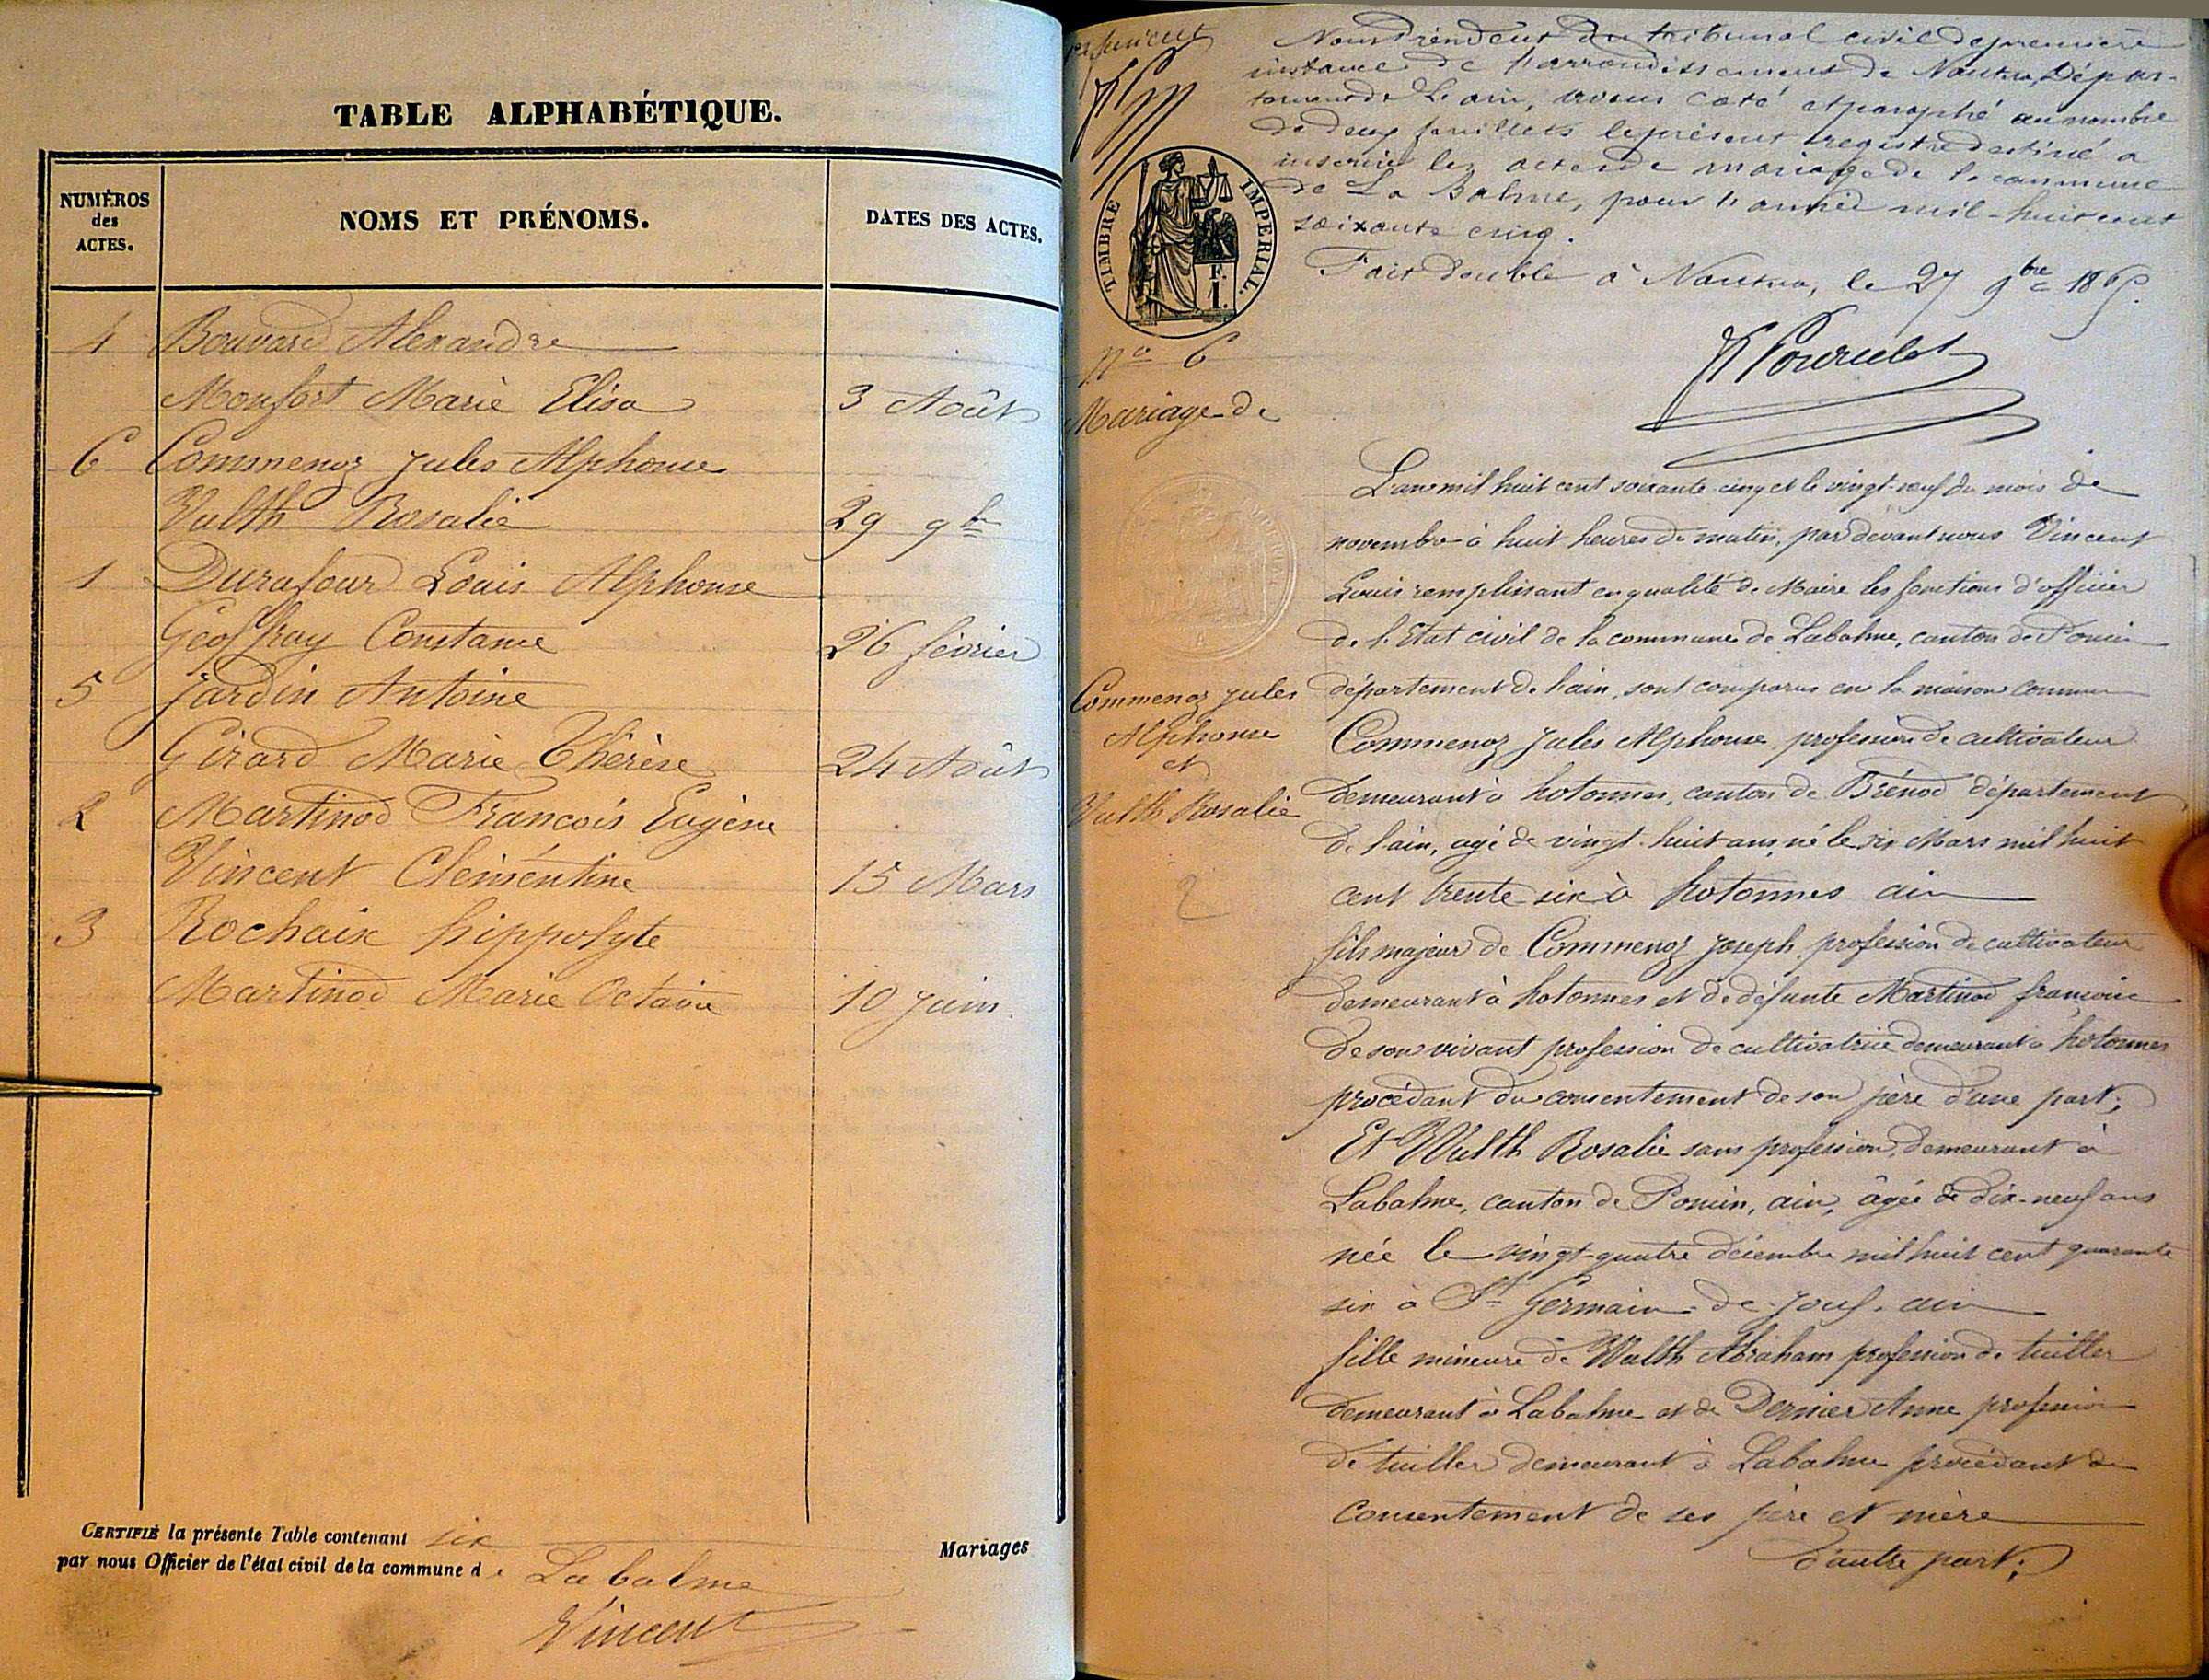 TABLE ALPHABÉTIQUE.
NUMÉROS
des
ACTES.
NOMS ET PRÉNOMS.
DATES DES ACTES.
4 Bouvard Alexandre
Monfort Marie Elisa 3 Août
6 Commenoz Jules Alphonse
Vulth Rosalie 29 9bre
1 Durafour Louis Alphonse
Geoffray Constance 26 février
5 Jardin Antoine
Girard Marie Thérèse 24 Août
2 Martinod François Eugène
Vincent Clémentine 15 Mars
3 Rochaix hippolyte
Martinod Marie Octavie 10 Juin.
CERTIFIÉ la présente Table contenant six Mariages
par nous Officier de l'état civil de la commune de Labalme
Vincent
1er feuillet
Nous Président du tribunal civil de première
instance de l'arrondissement de Nantua, Dépar-
tement de L'ain, avons coté et paraphé au nombre
de deux feuillets le présent registre destiné a
inscrire les actes de mariage de la commune
de La Balme, pour l'année mil-huit cent
soixante cinq.
Fait double à Nantua, le 27 9bre 1865.
TIMBRE IMPÉRIAL.
F.
1.
No 6
Mariage de
Commenoz Jules
Alphonse
et
Vulth Rosalie
2
L'an mil huit cent soixante-cinq et le vingt-neuf du mois de
novembre à huit heures du matin, par devant nous Vincent
Louis remplissant en qualité de Maire les fonctions d'officier
de l'Etat civil de la commune de Labalme, canton de Poncin
département de l'ain, sont comparus en la maison commune
Commenoz Jules Alphonse profession de cultivateur
demeurant à hotonnes, canton de Brénod département
de l'ain, agé de vingt-huit ans, né le six Mars mil huit
cent trente six à hotonnes ain
fils majeur de Commenoz Joseph profession de cultivateur
demeurant à hotonnes et de défunte Martinod françoise
de son vivant profession de cultivatrice demeurant à hotonnes
procédant du consentement de son père d'une part;
Et Wulth Rosalie sans profession, demeurant à
Labalme, canton de Poncin, ain, âgée de dix-neuf ans
née le vingt-quatre décembre mil huit cent quarante
six à St Germain-de-Joux. ain
fille mineure de Wulth Abraham profession de tuiller
demeurant à Labalme et de Dernier Anne profession
de tuiller demeurant à Labalme procédant du
consentement de ses père et mère
d'autre part;